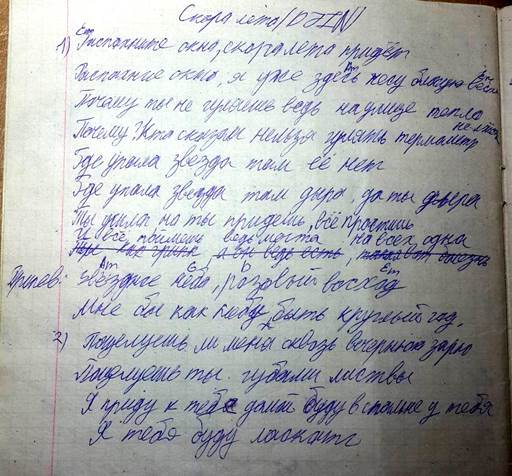 Скоро лето (DJIN)
Em
1) Распахните окна, скоро лето придёт
Am Em
Распахните окно, я уже здесь несу близкую весть
Почему ты не гуляешь ведь на улице тепло
Почему? Кто сказал нельзя гулять термометр не
Где упала звезда там её нет
Где упала звезда там дыра, да ты дыра
Ты ушла но ты придешь, всё простишь
И всё поймешь ведь на всех одна
Am D Em
Припев: Звёздное небо, розовый восход
Мне бы как небу быть круглый год.
2) Поцелуешь ли меня сквозь вечернюю зарю
Поцелуешь ты губами листвы
Я приду к тебе домой буду в спальне у тебя
Я тебя буду ласкать